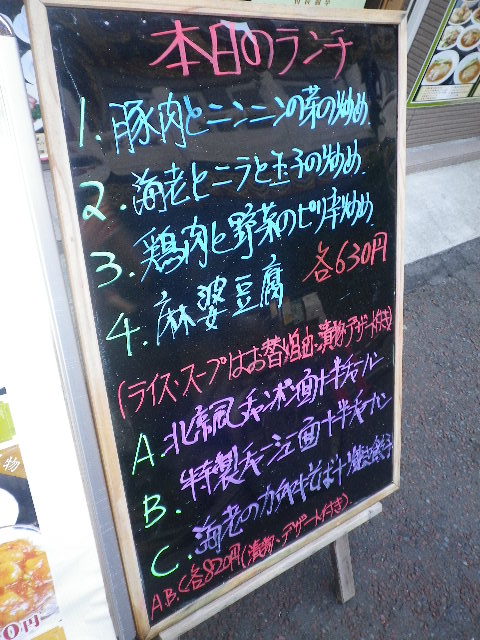 本日のランチ
1. 豚肉とニンニンの菜の炒め
2. 海老とニラと玉子の炒め
3. 鶏肉と野菜のピリ辛炒め
4. 麻婆豆腐 各630円
(ライス・スープはお替り自由・漬物・デザート付き)
A. 北京風チャンポン面+半チャーハン
B. 特製チャーシュー面+半チャーハン
C. 海老のカタヤキそば+焼き餃子
A.B.C各820円(漬物、デザート付き)
物
0円